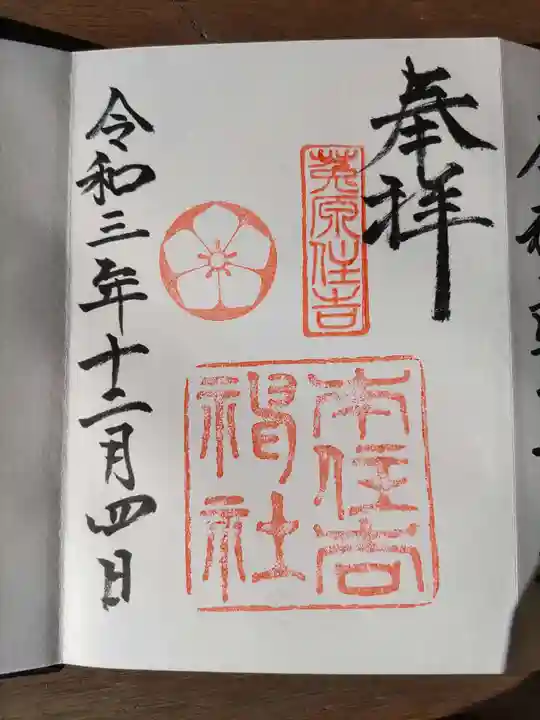 奉拝
莵原住吉
本住吉
神社
令和三年十二月四日